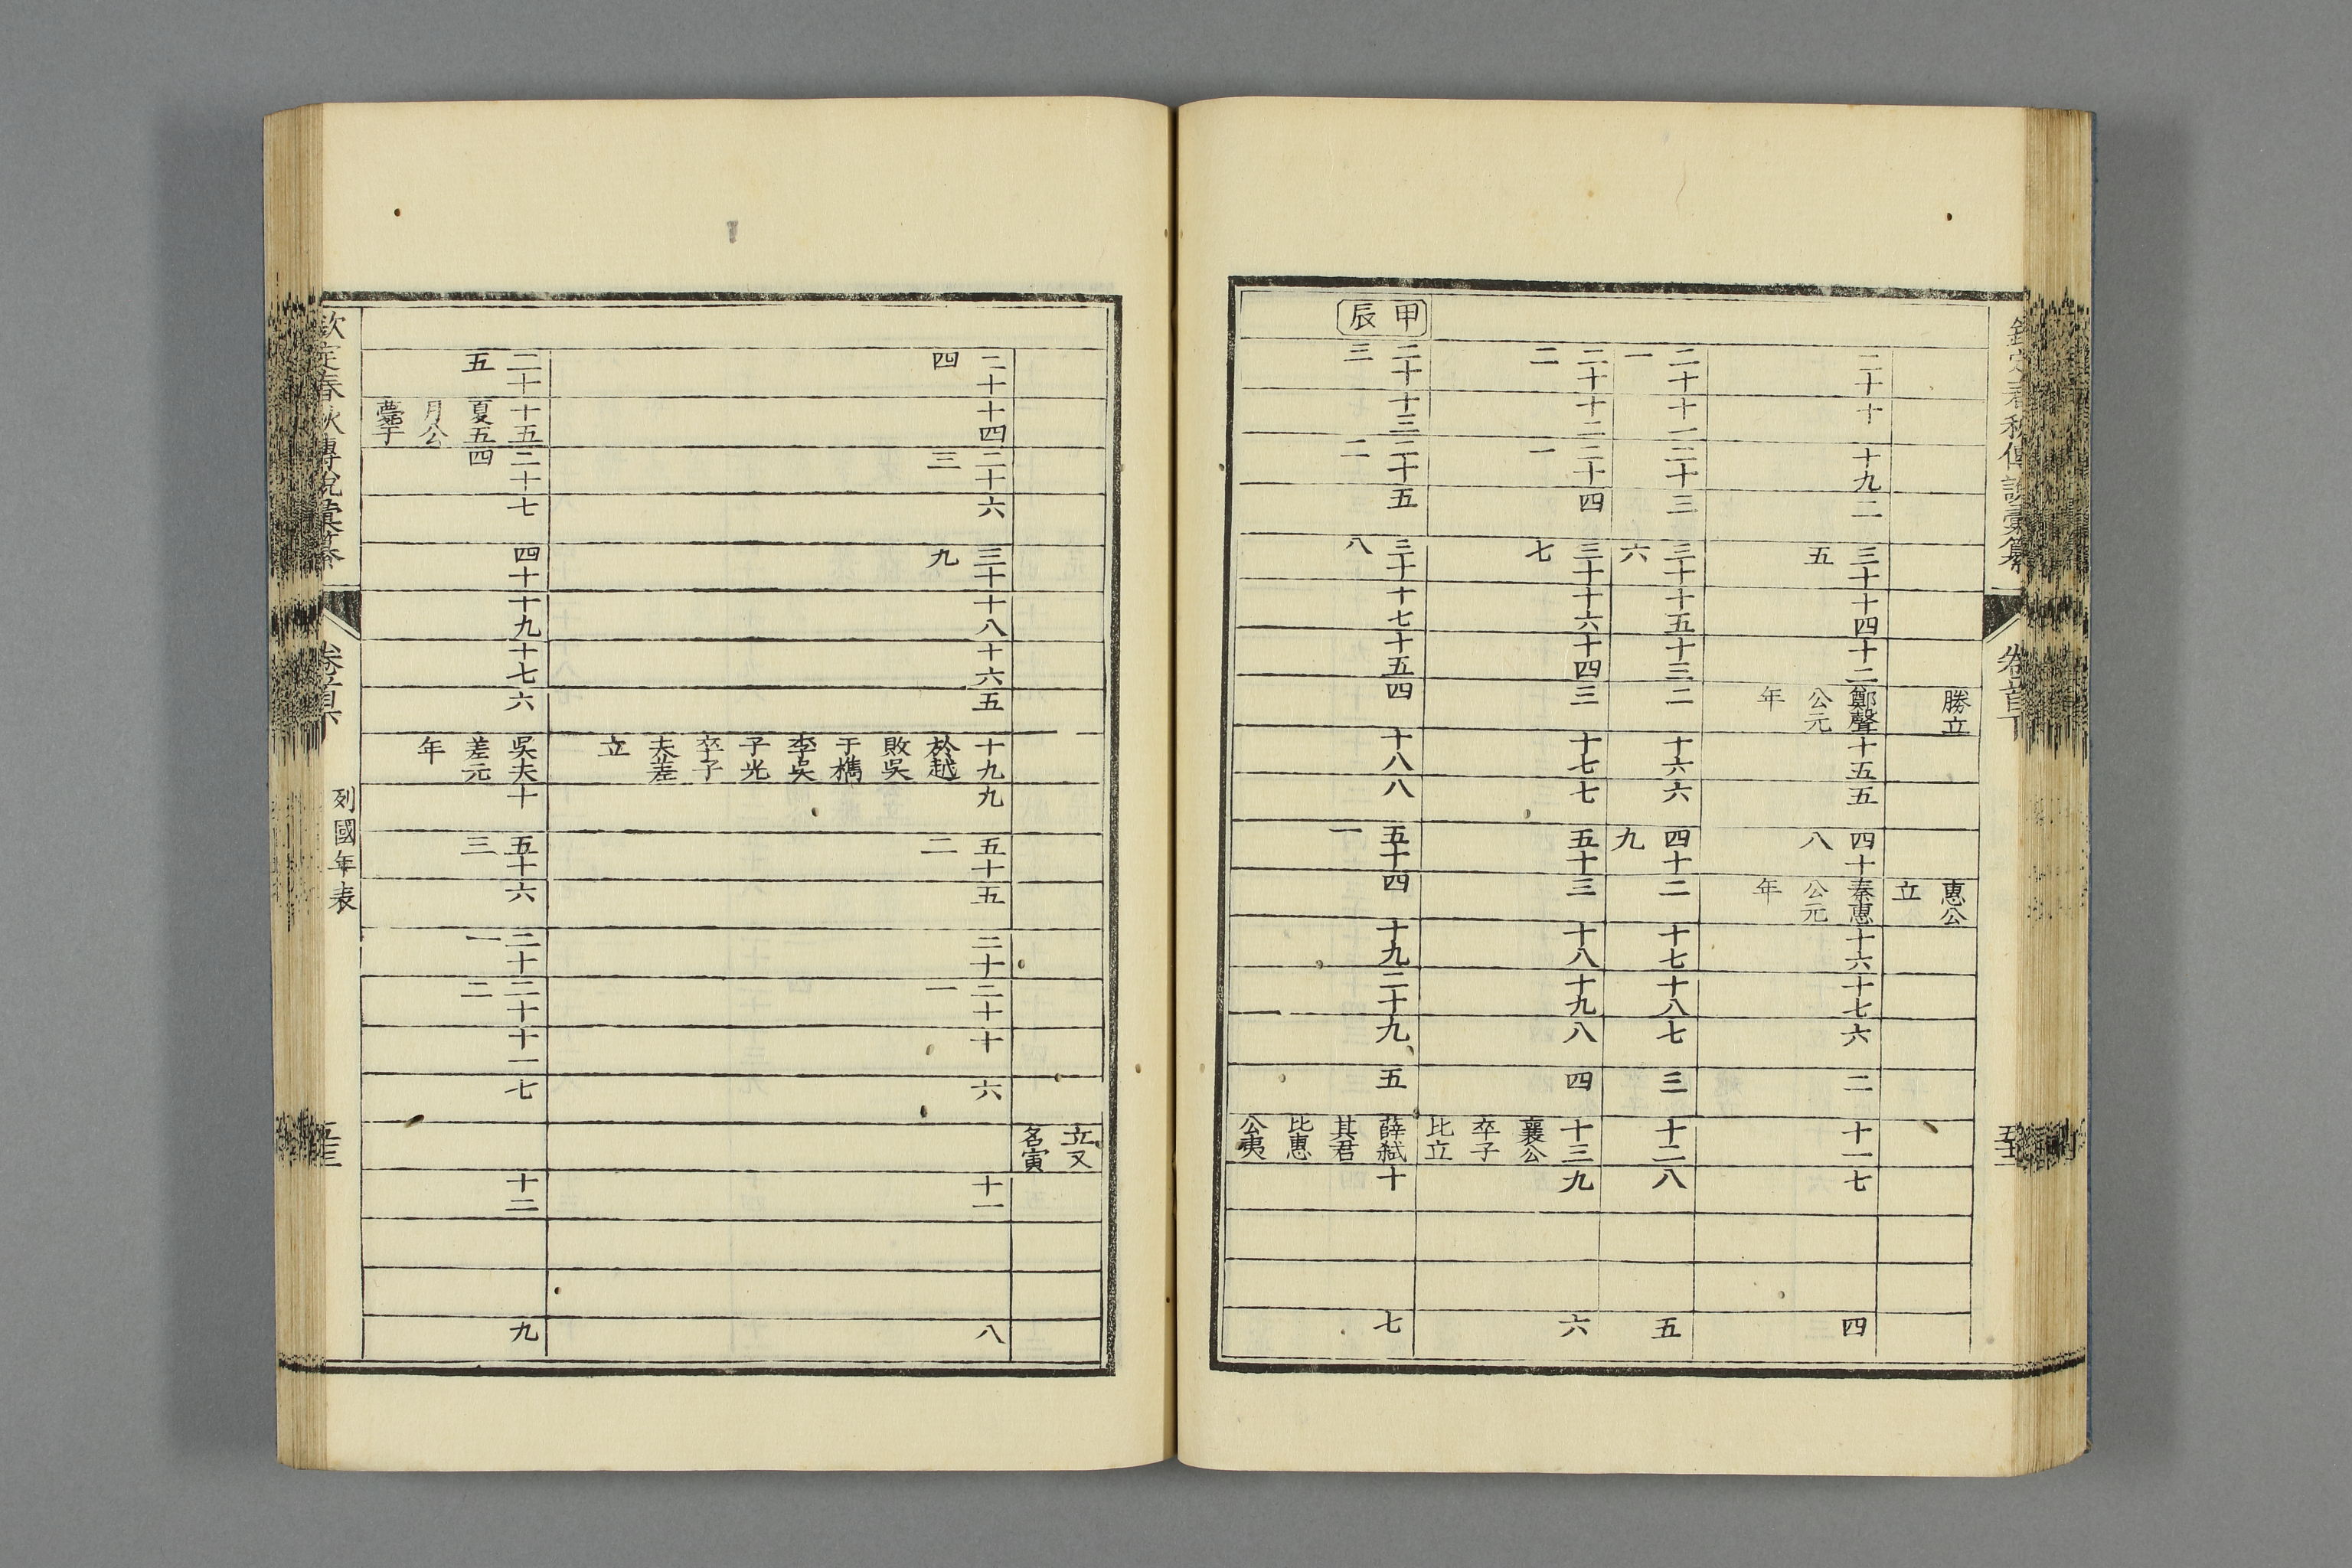 欽定春秋傳說彙纂 卷首下
勝立 惠公
立
二十 十 十九 二 三十 十四 十二 鄭聲 十五 五 四十 秦惠 十六 十七 六 二 十一 七 四
五 公元 八 公元
年 年
二十 十一 二十三 三十 十五 十三 二 十六 六 四十 二 十七 十八 七 三 十二 八 五
一 六 九
二十 十二 二十四 三十 十六 十四 三 十七 七 五十 三 十八 十九 八 四 十三 九 六
二 一 七 襄公
卒子
比立
甲辰
二十 十三 二十五 三十 十七 十五 四 十八 八 五十 四 十九 二十 九 五 薛弑 十 七
三 二 八 一 其君
比惠
公夷
立又
名寅
二十 十四 二十六 三十 十八 十六 五 十九 九 五十 五 二十 二十 十 六 十一 八
四 三 九 於越 二 一
敗吳
于檇
李吳
子光
卒子
夫差
立
二十 十五 二十七 四十 十九 十七 六 吳夫 十 五十 六 二十 二十 十一 七 十二 九
五 夏五 四 差元 三 一 二
月公 年
薨于
欽定春秋傳說彙纂 卷首下 列國年表 五十三